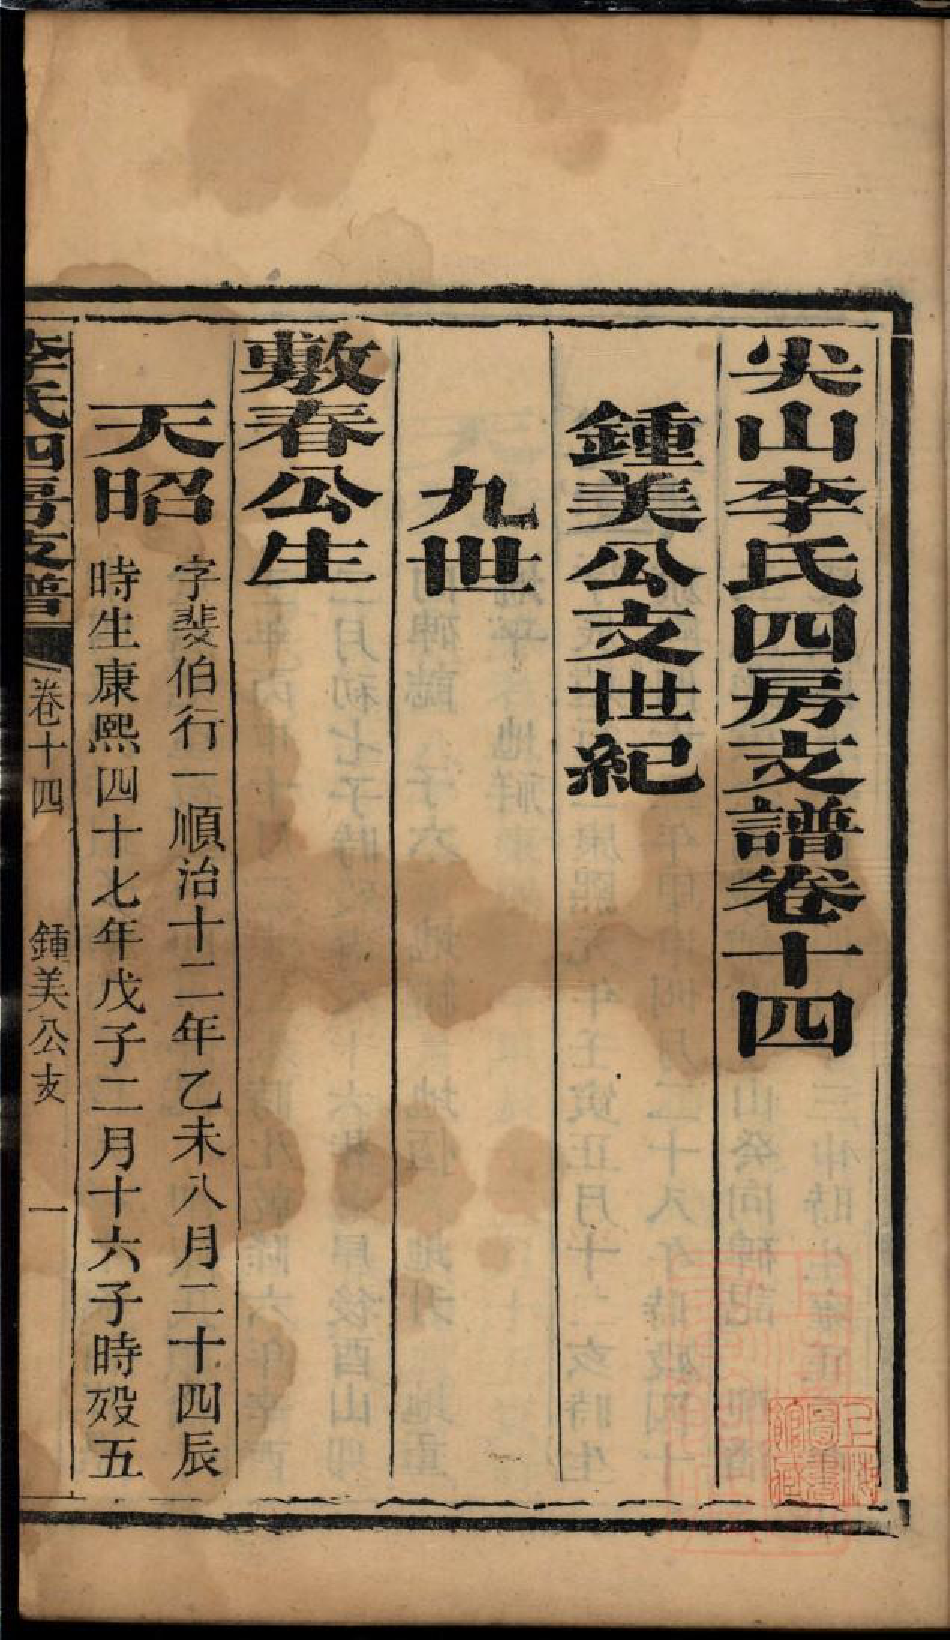 尖山李氏四房支譜卷十四
鍾美公支世紀
九世
敷春公生
天昭
字斐伯行一順治十二年乙未八月二十四辰
時生康熙四十七年戊子二月十六子時殁五
李氏四房支譜
卷十四
鍾美公支
一
上海
圖書
館藏